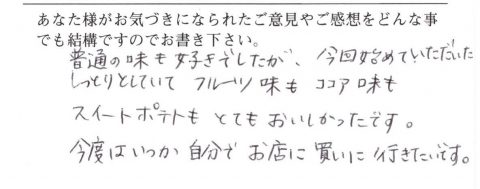 あなた様がお気づきになられたご意見やご感想をどんな事
でも結構ですのでお書き下さい。
普通の味も好きでしたが、今回始めていただいた
しっとりとしていて フルーツ味も ココア味も
スイートポテトも とても おいしかったです。
今度はいつか 自分で お店に 買いに 行きたいです。